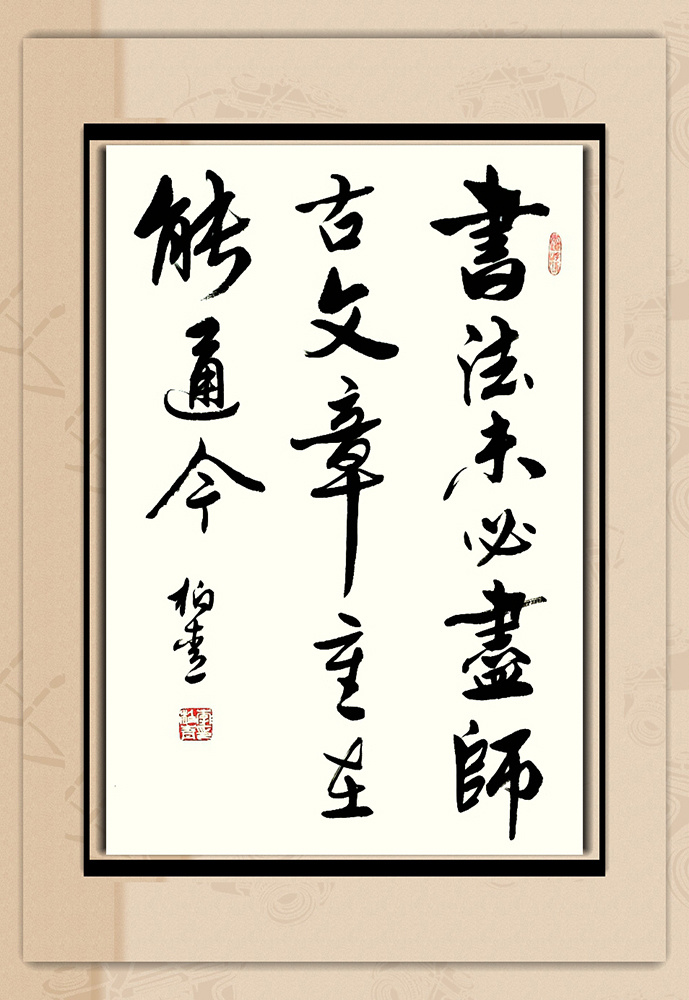 書法未必盡師
古文章重在
能通今
柏青